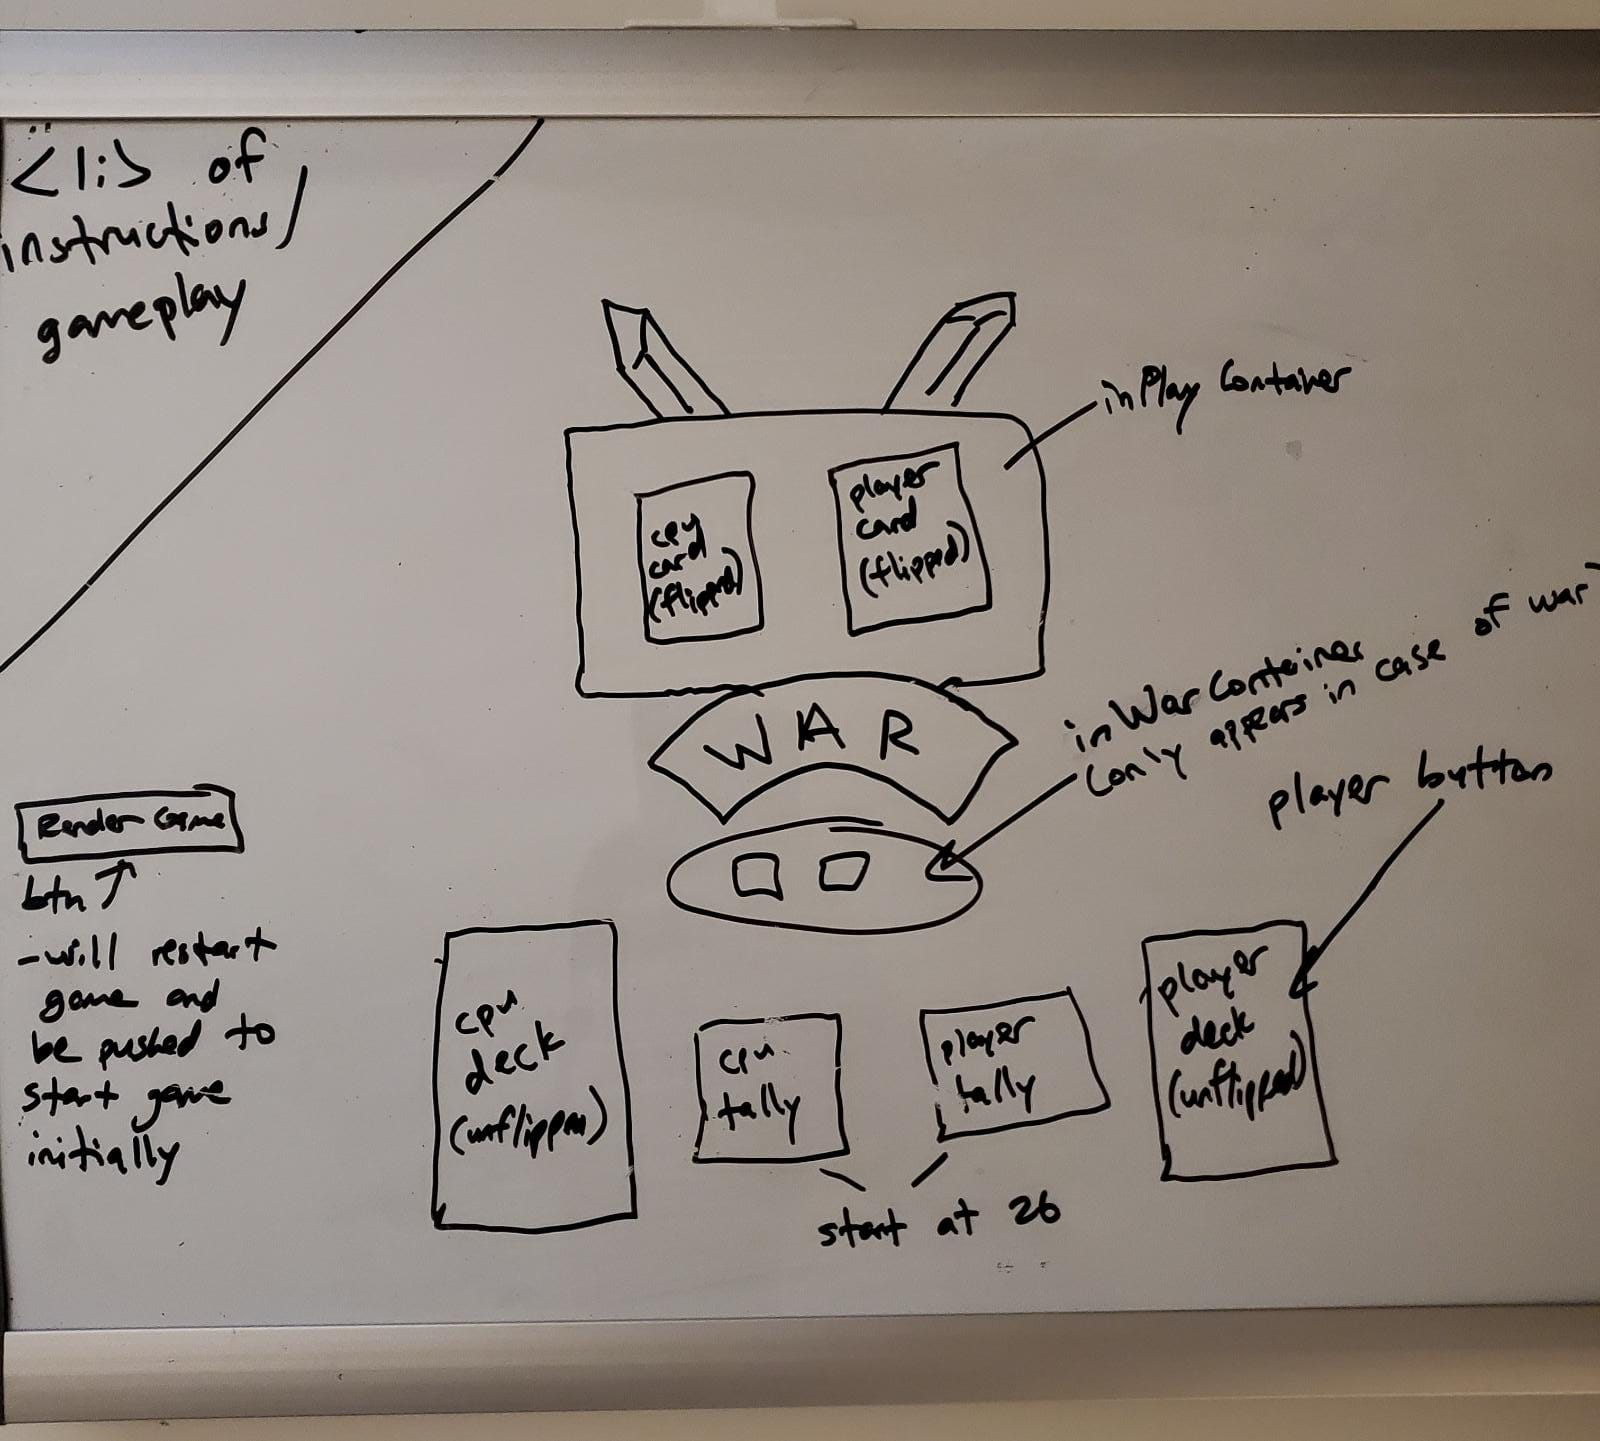 <li> of
instructions/
gameplay
inPlay Container
cpu
card
(flipped)
player
card
(flipped)
WAR
inWar Container
(only appears in case of war)
player button
Render Game
btn ↑
- will restart
game and
be pushed to
start game
initially
cpu
deck
(unflipped)
cpu
tally
player
tally
player
deck
(unflipped)
start at 26